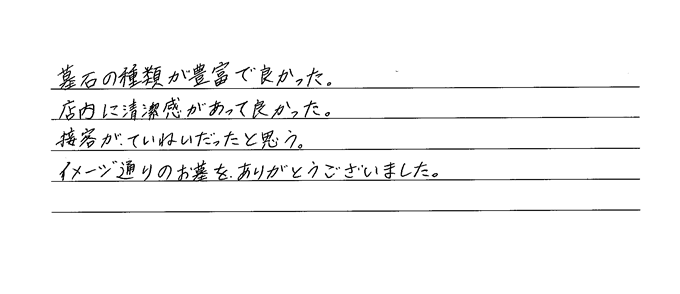 墓石の種類が豊富で良かった。
店内に清潔感があって良かった。
接客が、ていねいだったと思う。
イメージ通りのお墓を、ありがとうございました。